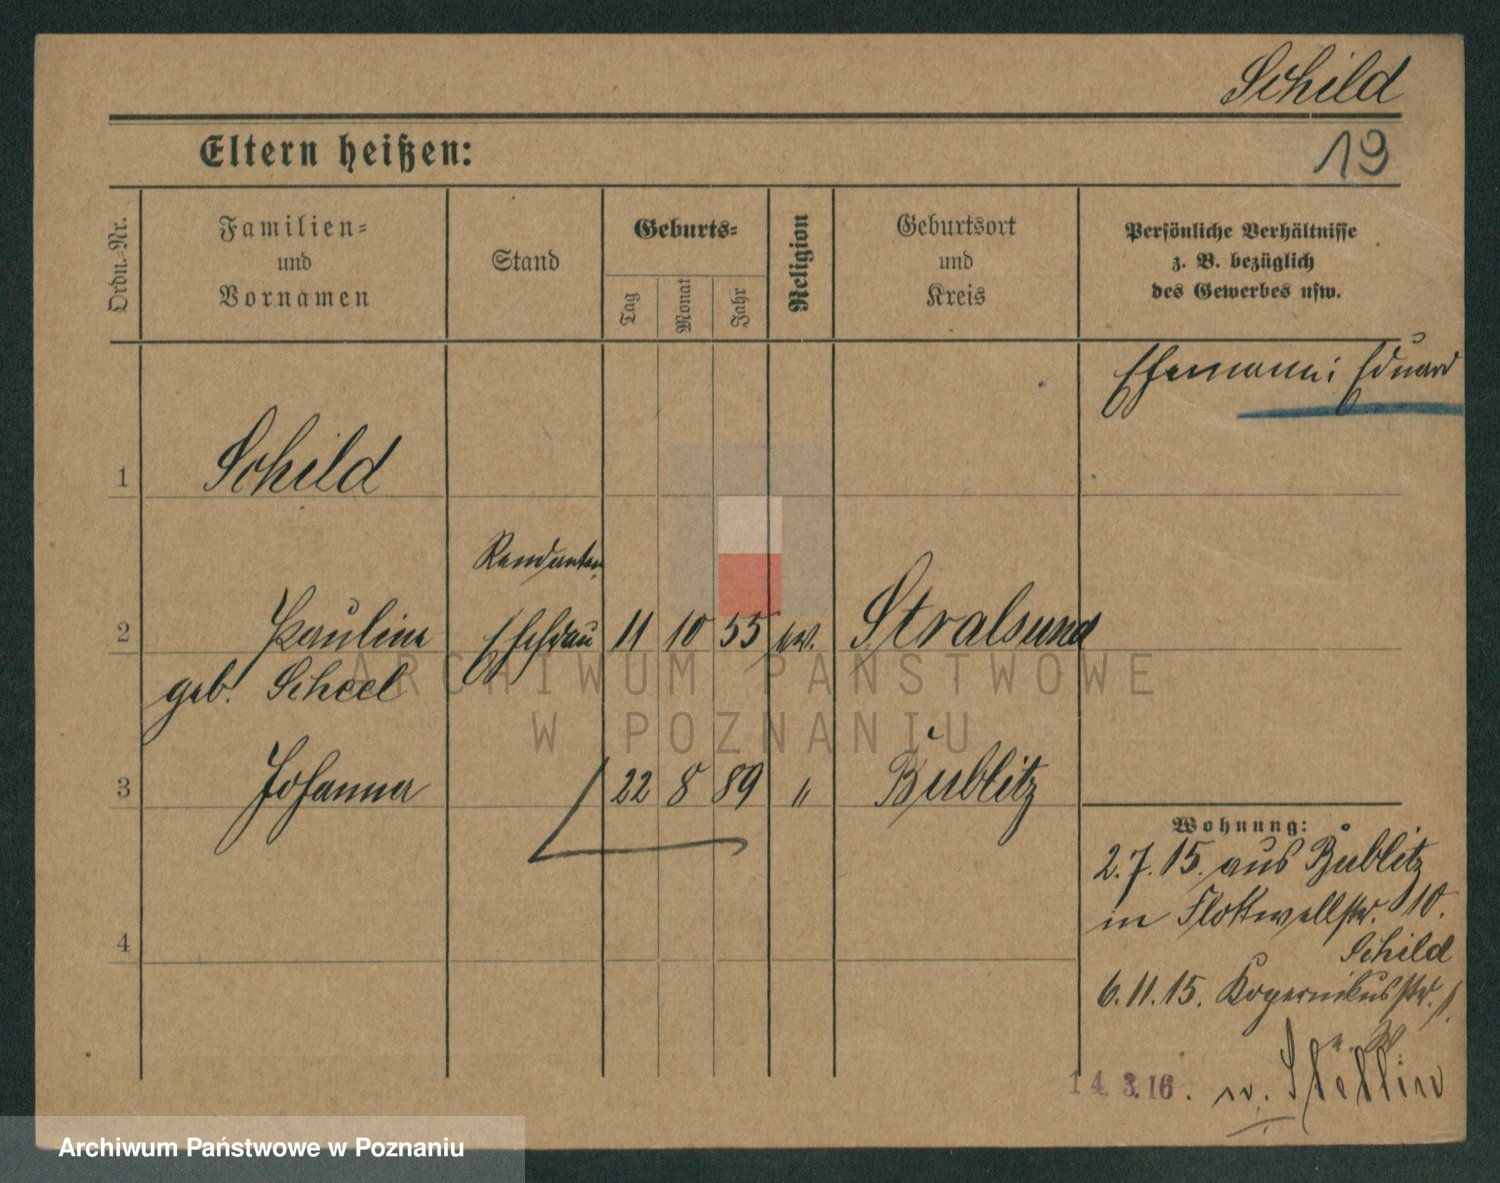 Schild
19
Eltern heißen:
Ordn.-Nr.
Familien-
und
Vornamen
Stand
Geburts-
Tag
Monat
Jahr
Religion
Geburtsort
und
Kreis
Persönliche Verhältnisse
z. B. bezüglich
des Gewerbes usw.
Ehemann: Eduard
1 Schild
Rendanten
2 Pauline Ehefrau 11 10 55 ev. Stralsund
geb. Scheel
3 Johanna 22 8 89 " Bublitz
4
Wohnung:
2.7.15. aus Bublitz
in Flottwellstr. 10.
Schild
6.11.15. Kopernikusstr.
14.3.16. n. Stettin
ARCHIWUM PAŃSTWOWE
W POZNANIU
Archiwum Państwowe w Poznaniu